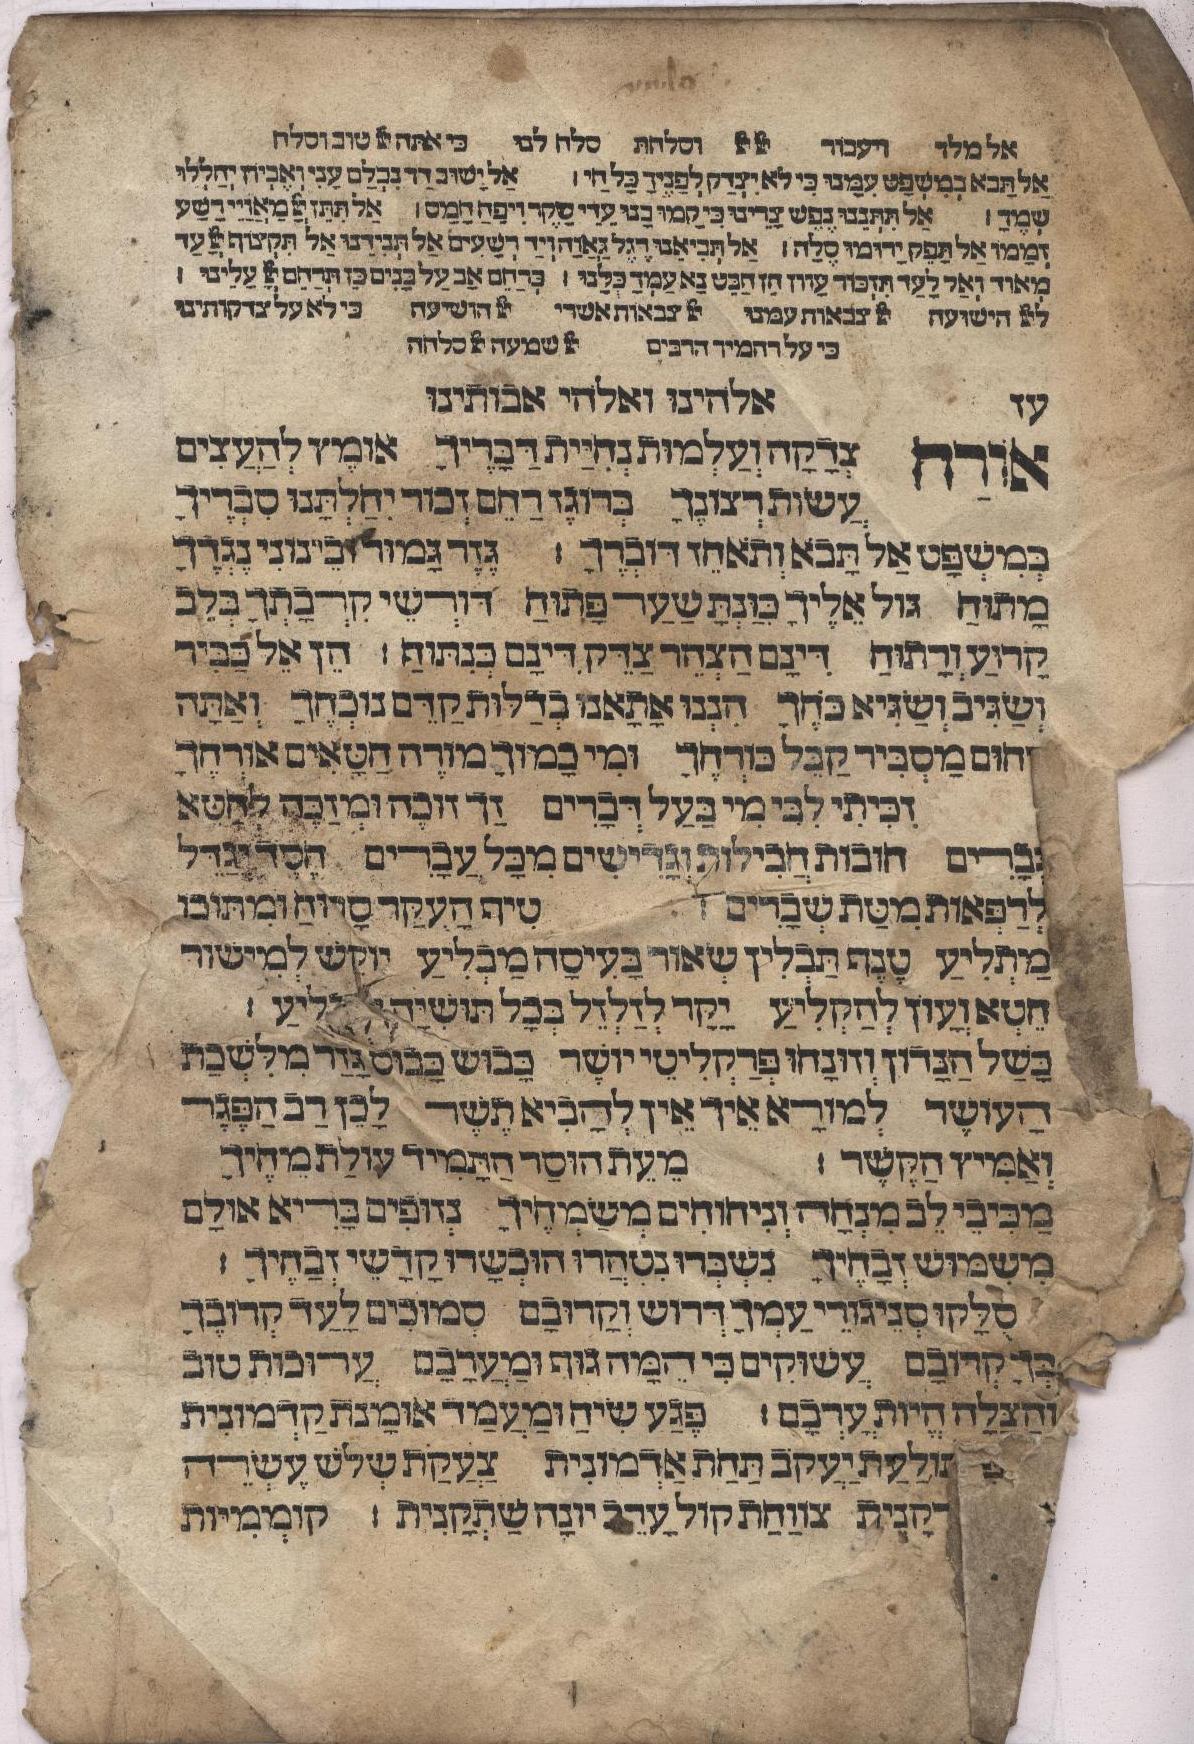 אל מלך ויעבור יי יי וסלחת סלח לנו כי אתה יי טוב וסלח
אַל תָּבֹא בְמִשְׁפָּט עִמָּנוּ כִּי לֹא יִצְדַּק לְפָנֶיךָ כָּל חַי : אַל יָשׁוֹב דַּךְ נִכְלָם עָנִי וְאֶבְיוֹן יְהַלְלוּ
שְׁמֶךָ : אַל תִּתְּנֵנוּ בְּנֶפֶשׁ צָרֵינוּ כִּי קָמוּ בָנוּ עֵדֵי שֶׁקֶר וִיפֵחַ חָמָס : אַל תִּתֵּן יי מַאֲוַיֵּי רָשָׁע
זְמָמוֹ אַל תָּפֵק יָרוּמוּ סֶלָה : אַל תְּבִיאֵנוּ רֶגֶל גַּאֲוָה וְיַד רְשָׁעִים אַל תְּנִידֵנוּ אַל תִּקְצוֹף יי עַד
מְאוֹד וְאַל לָעַד תִּזְכּוֹר עָוֹן הֵן הַבֶּט נָא עַמְּךָ כֻלָּנוּ : כְּרַחֵם אָב עַל בָּנִים כֵּן תְּרַחֵם יי עָלֵינוּ :
ליי הישועה יי צבאות עמנו יי צבאות אשרי יי הושיעה כי לא על צדקותינו
כי על רחמיך הרבים יי שמעה יי סלחה
עז אלהינו ואלהי אבותינו
אוֹרַח צְדָקָה וְעַלְמוּת נְהִיַּית דְּבָרֶיךָ אוֹמֶץ לְהַעֲצִים
עֲשׂוֹת רְצוֹנֶךָ בְּרוֹגֶז רַחֵם זְכוֹר יִחַלְתָּנוּ סִבְרֶיךָ
בְּמִשְׁפָּט אַל תָּבֹא וְתֹאחֵז דּוֹבְרֶךָ : גֶּזֶר גָּמוּר וּבֵינוֹנִי נֶגְדְּךָ
מָתוּחַ גּוֹל אֵלֶיךָ כִּוַּנְתָּ שַׁעַר פָּתוּחַ דּוֹרְשֵׁי קִרְבָתְךָ בְּלֵב
קָרוּעַ וְרָתוּחַ דִּינָם הַצְהֵר צַדֵּק דִּינָם כְּנִתּוּחַ : הֵן אֵל כַּבִּיר
וְשַׂגִּיב וְשַׂגִּיא כֹּחֶךָ הִנְנוּ אָתָאנוּ בְּדַלּוּת קַדֵּם נוֹכְחֶךָ וְאַתָּה
רחום מַסְבִּיר קַבֵּל כּוֹרְחֶךָ וּמִי כָמוֹךָ מוֹרֶה חַטָּאִים אוֹרְחֶךָ
זִכִּיתִי לִבִּי מִי בַּעַל דְּבָרִים זַךְ זוֹכֶה וּמְזַכֶּה לְחַטֵּא
גְּבָרִים חוֹבוֹת חֲבִילוֹת וְגָדִישִׁים מִכָּל עֲבָרִים חֶסֶד יִגְדַּל
לְרַפְּאוֹת מִטַּת שְׁבָרִים : טִיף הָעֵקֶר סָרוּחַ וּמִתּוֹכוֹ
מַתְלִיעַ טֶנֶף תַּבְלִין שְׂאוֹר בָּעִיסָה מַבְלִיעַ יוּקַשׁ לְמִישׁוֹר
חֵטְא וְעָוֹן לְהַקְלִיעַ יָקָר לְזַלְזֵל בְּכָל תּוּשִׁיָּה :
כָּשַׁל הַנָּדוֹן וְזוּנְחוּ פְּרַקְלִיטֵי יוֹשֶׁר כָּבוּשׁ כַּבּוֹס גָּזַר מִלִּשְׁכַּת
הָעוֹשֶׁר לְמוֹרָא אֵיךְ אֵין לְהָבִיא תֶשֶׁר לָכֵן רַב הַפֶּגֶר
וְאַמִּיץ הַקֶּשֶׁר : מֵעֵת הוּסַר הַתָּמִיד עוֹלַת מֵחֶיךָ
מַכְּיבֵי לֵב מִנְחָה וְנִיחוֹחִים מְשַׂמְּחֶיךָ נְזוּפִים בָּרִיא אוּלָם
מִשִּׁמּוּשׁ זְבָחֶיךָ נִשְׁבְּרוּ נִטְהֲרוּ הוּכְשְׁרוּ קָדְשֵׁי זְבָחֶיךָ :
סֻלָּקוּ סְנֵיגוֹרֵי עַמְּךָ דְּרוֹשׁ וְקָרוֹבָם סְמוּכִים לָעַד קְרוֹבֶךָ
בְּךָ קְרוֹבָם עֲשׁוּקִים כִּי הֵמָּה גּוּף וּמַעֲרָבָם עֲרוּבוֹת טוֹב
וְהַצָּלָה הֱיוֹת עָרְבָם : פֶּגַע שִׂיחַ וּמַעֲמַד אוֹמָנַת קַדְמוֹנִית
תוֹלַעַת יַעֲקֹב תַּחַת אַדְמוֹנִית צַעֲקַת שְׁלֹשׁ עֶשְׂרֵה
צִוְחַת קוֹל עָרֵב יוֹנָה שַׁתְקָנִית : קוֹמְמִיּוּת